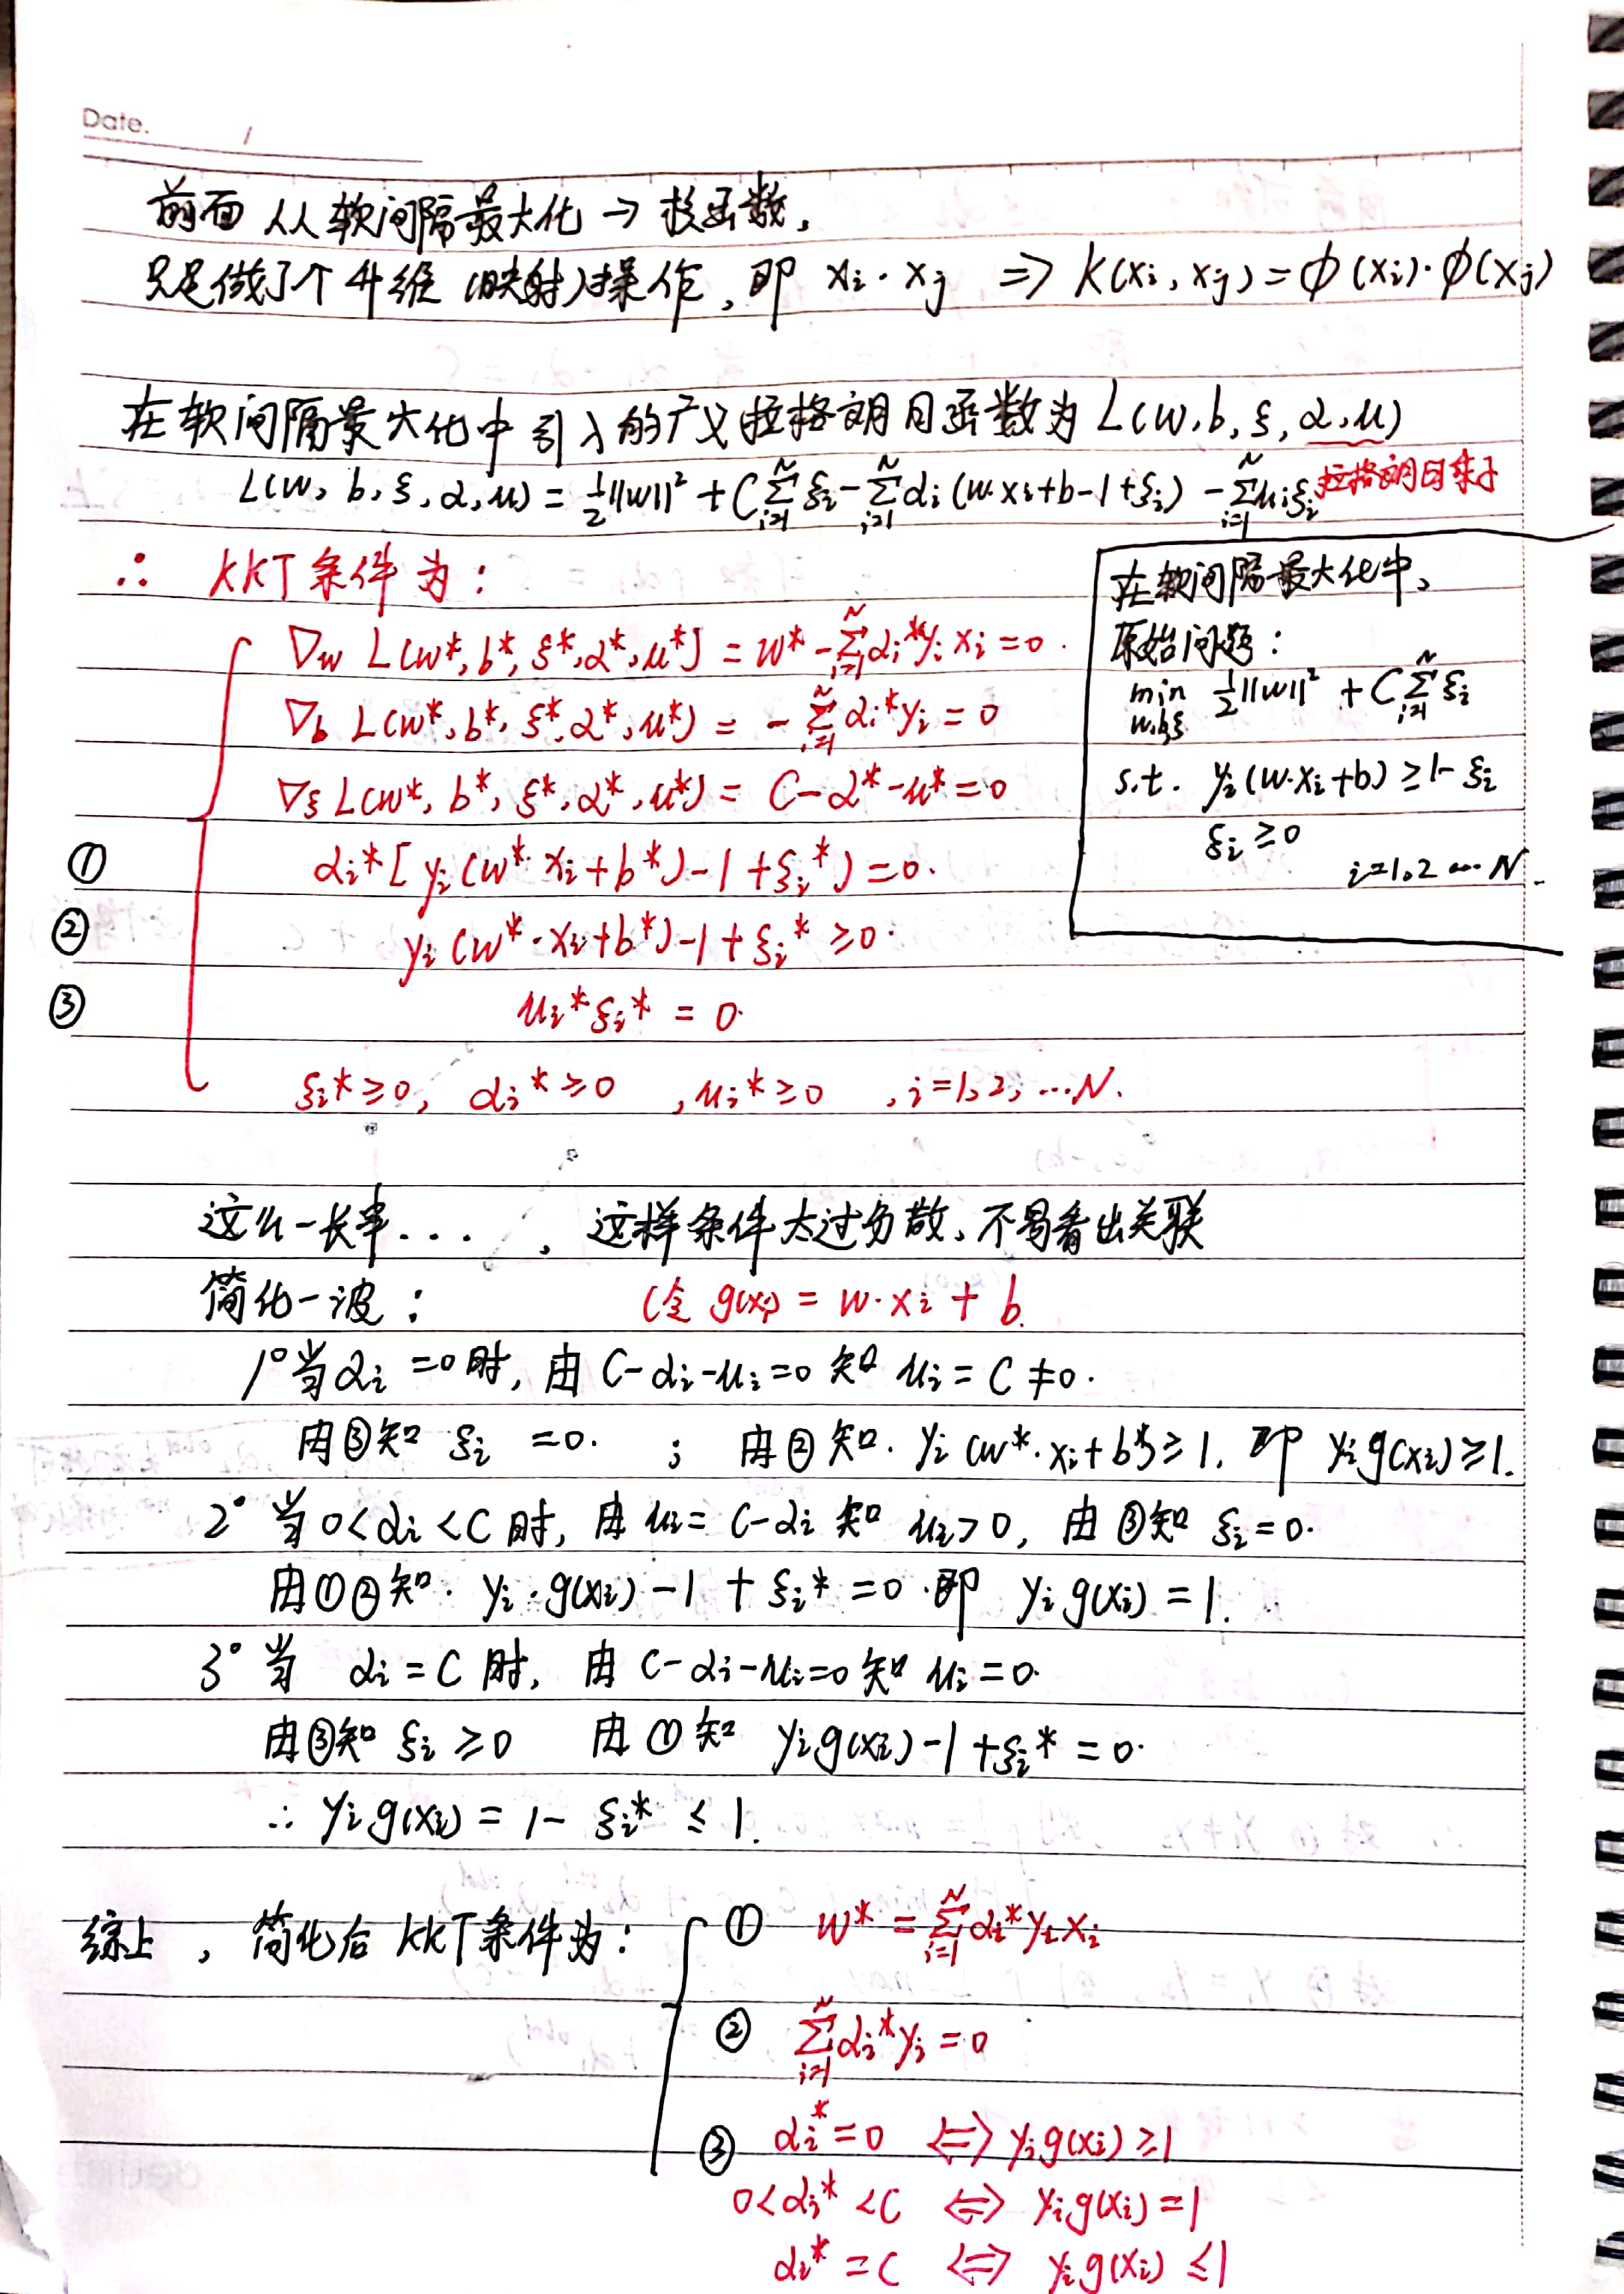 Date. /
前面 从 软间隔最大化 → 核函数,
只是做了个 升维 (映射)操作, 即 xᵢ · xⱼ ⇒ K(xᵢ, xⱼ) = φ(xᵢ)·φ(xⱼ)
在软间隔最大化中引入的广义拉格朗日函数为 L(w, b, ξ, α, μ)
L(w, b, ξ, α, μ) = ½||w||² + C∑ᵢ₌₁ᴺ ξᵢ - ∑ᵢ₌₁ᴺ αᵢ (w·xᵢ+b-1+ξᵢ) - ∑ᵢ₌₁ᴺ μᵢξᵢ 拉格朗日乘子
∴ KKT 条件为:
∇w L(w*, b*, ξ*, α*, μ*) = w* - ∑ᵢ₌₁ᴺ αᵢ*yᵢ xᵢ = 0.
∇b L(w*, b*, ξ*, α*, μ*) = - ∑ᵢ₌₁ᴺ αᵢ*yᵢ = 0
∇ξ L(w*, b*, ξ*, α*, μ*) = C - α* - μ* = 0
① αᵢ* [ yᵢ (w*·xᵢ + b*) - 1 + ξᵢ* ) = 0.
② yᵢ (w*·xᵢ + b*) - 1 + ξᵢ* ≥ 0.
③ μᵢ* ξᵢ* = 0.
ξᵢ* ≥ 0, αᵢ* ≥ 0 , μᵢ* ≥ 0 , i = 1, 2, ... N.
在软间隔最大化中,
原始问题:
min w,b,ξ ½||w||² + C∑ᵢ₌₁ᴺ ξᵢ
s.t. yᵢ (w·xᵢ + b) ≥ 1 - ξᵢ
ξᵢ ≥ 0
i=1,2 ... N.
这么一长串... , 这样条件太过分散, 不易看出关联
简化一波: (令 g(xᵢ) = w·xᵢ + b
1° 当 αᵢ = 0 时, 由 C-αᵢ-μᵢ=0 知 μᵢ = C ≠ 0.
由③知 ξᵢ = 0. ; 由②知. yᵢ (w*·xᵢ + b*) ≥ 1, 即 yᵢ g(xᵢ) ≥ 1.
2° 当 0 < αᵢ < C 时, 由 μᵢ = C-αᵢ 知 μᵢ > 0, 由③知 ξᵢ = 0.
由①②知. yᵢ·g(xᵢ) - 1 + ξᵢ* = 0 .即 yᵢ g(xᵢ) = 1.
3° 当 αᵢ = C 时, 由 C-αᵢ-μᵢ=0 知 μᵢ = 0.
由③知 ξᵢ ≥ 0 由①知 yᵢ g(xᵢ) - 1 + ξᵢ* = 0.
∴ yᵢ g(xᵢ) = 1 - ξᵢ* ≤ 1.
综上, 简化后 KKT 条件为: ① w* = ∑ᵢ₌₁ᴺ αᵢ* yᵢ xᵢ
② ∑ᵢ₌₁ᴺ αᵢ* yᵢ = 0
③ αᵢ* = 0 ⇔ yᵢ g(xᵢ) ≥ 1
0 < αᵢ* < C ⇔ yᵢ g(xᵢ) = 1
αᵢ* = C ⇔ yᵢ g(xᵢ) ≤ 1